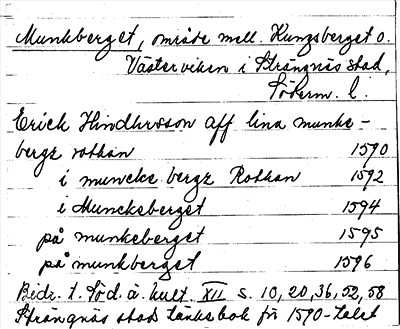 Munkberget, område mell. Kungsberget o.
Västerviken i Strängnäs stad,
Söderm. l.
Erich Hindhrsson aff lina munke-
bergz rothan 1590
i muncke bergz Rothan 1592
i Munckeberget 1594
på munkeberget 1595
på munkberget 1596
Bidr. t. Söd. ä. kult. XII s. 10, 20, 36, 52, 58
Strängnäs stads tänkebok för 1590-talet